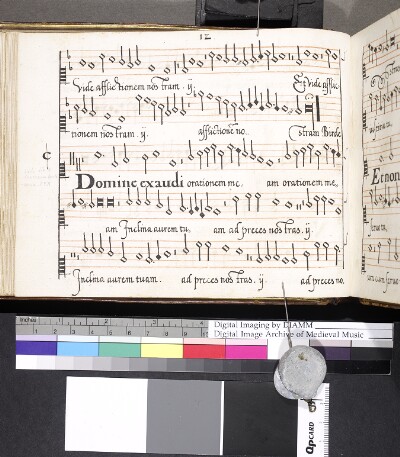 12
Vide afflictionem nostram. ij. Et vide afflic
tionem nostram. ij. afflictione no. stram
C
Domine exaudi orationem me. am orationem me,
am Inclina aurem tu, am ad preces nostras. ij.
Inclina aurem tuam. ad preces nostras. ij. ad preces no.
Et non
inches 1 2
Digital Imaging by DIAMM
Digital Image Archive of Medieval Music
QPCARD